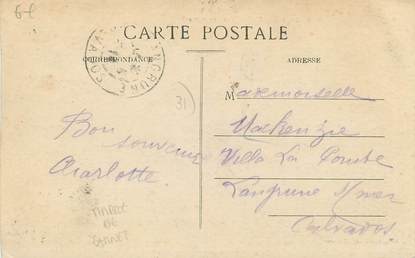 CARTE POSTALE
CORRESPONDANCE
ADRESSE
31
Mademoiselle
Mackenzie
Villa La Combe
Langrune s/mer
Calvados
Bon
souvenir
Charlotte
TIMBRE
DE